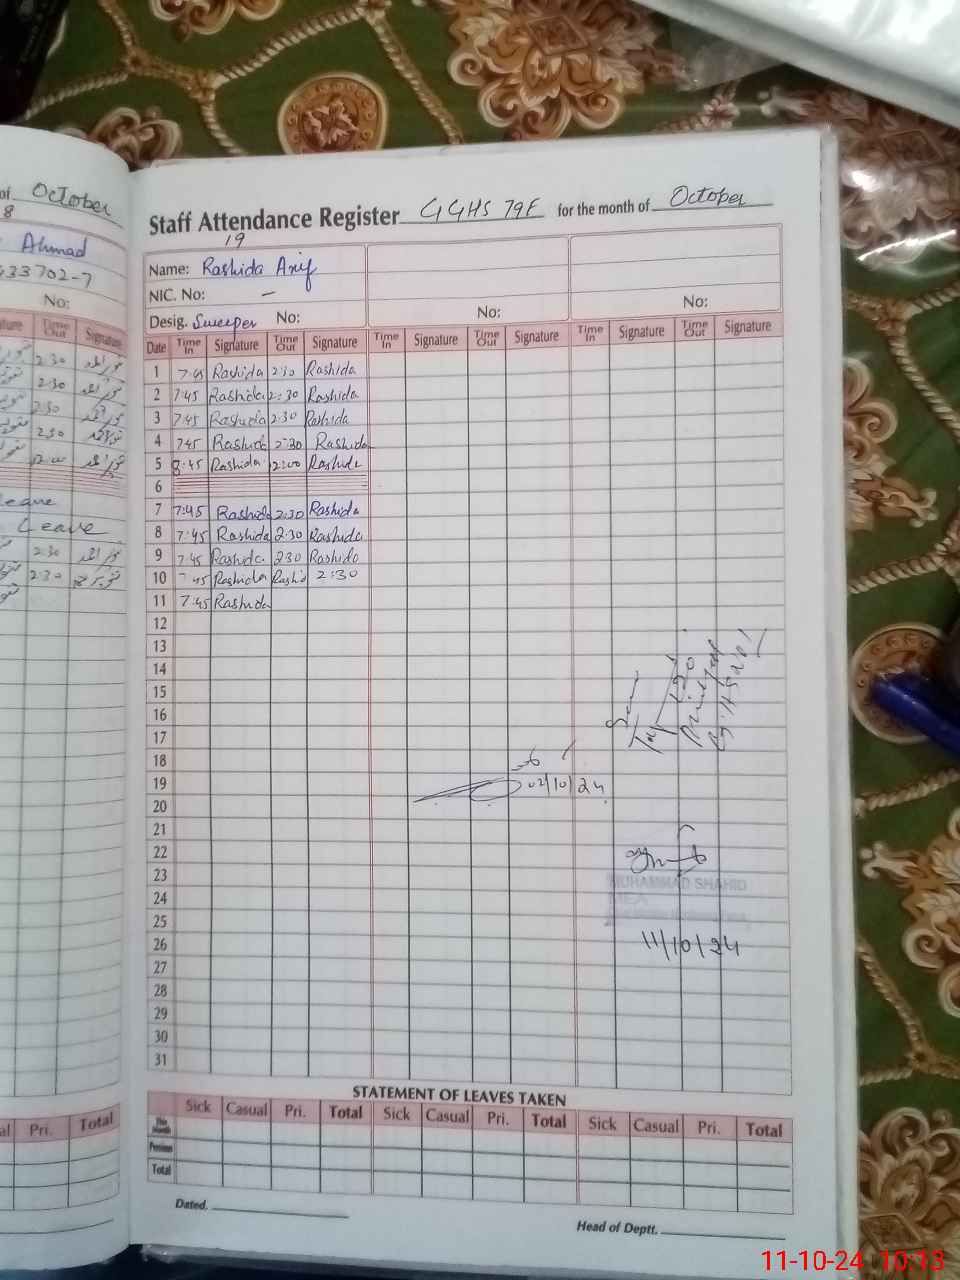 of October
8
Ahmad
433702-7
No:
Time Out Signature
2:30
2:30
2:30
2:30
12:00
Leave
Leave
2:30
2:30
Pri. Total
Staff Attendance Register GGHS 79F for the month of October
19
Name: Rashida Arif
NIC. No: -
Desig. Sweeper No: No: No:
Date Time In Signature Time Out Signature Time In Signature Time Out Signature Time In Signature Time Out Signature
1 7:45 Rashida 2:30 Rashida
2 7:45 Rashida 2:30 Rashida
3 7:45 Rashida 2:30 Rashida
4 7:45 Rashida 2:30 Rashida
5 8:45 Rashida 12:00 Rashida
6
7 7:45 Rashida 2:30 Rashida
8 7:45 Rashida 2:30 Rashida
9 7:45 Rashida 2:30 Rashida
10 7:45 Rashida Rashid 2:30
11 7:45 Rashida
12
13
14
15
16
17
18
19 02/10/24
20
21
22
23 MUHAMMAD SHAHID
24 MEA
25
26 11/10/24
27
28
29
30
31
STATEMENT OF LEAVES TAKEN
Sick Casual Pri. Total Sick Casual Pri. Total Sick Casual Pri. Total
This Month
Previous
Total
Dated.
Head of Deptt.
11-10-24 10:13